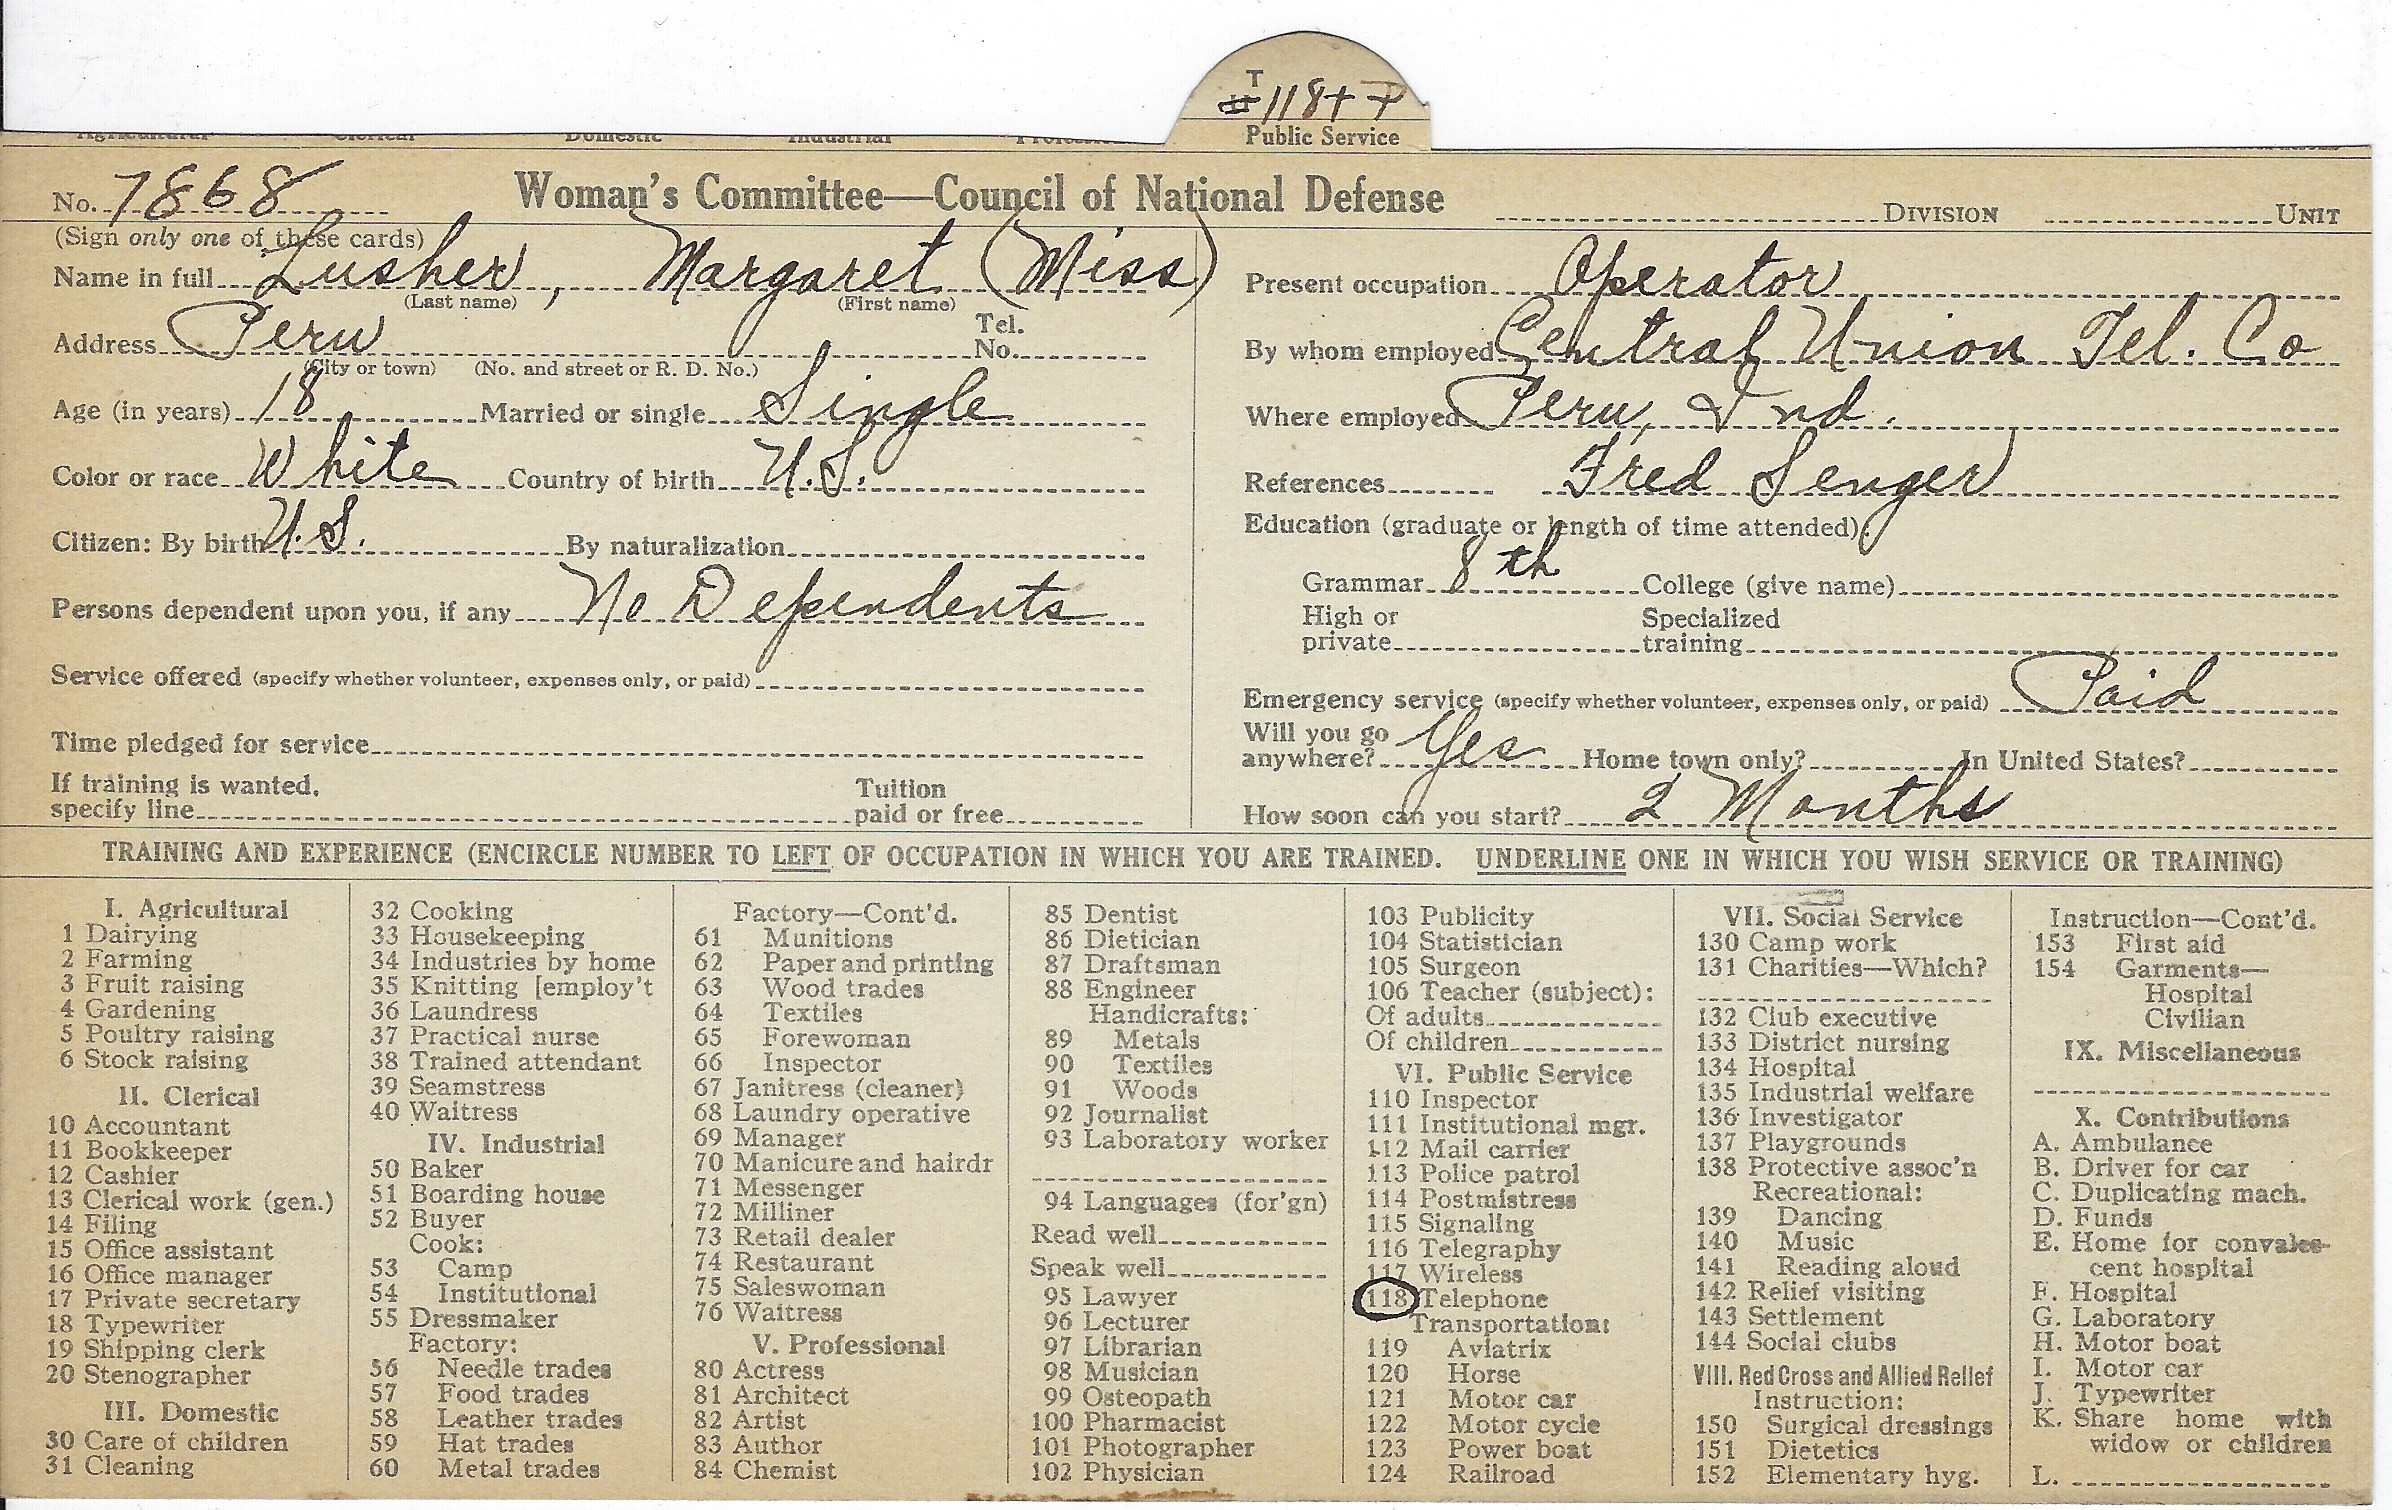 T
118 + P
Public Service
Agricultural Clerical Domestic Industrial
No. 7868 Woman's Committee—Council of National Defense DIVISION UNIT
(Sign only one of these cards)
Name in full Lusher, Margaret (Miss)
(Last name) (First name)
Address Peru Tel. No.
(City or town) (No. and street or R. D. No.)
Age (in years) 18 Married or single Single
Color or race White Country of birth U.S.
Citizen: By birth U.S. By naturalization
Persons dependent upon you, if any No Dependents
Service offered (specify whether volunteer, expenses only, or paid)
Time pledged for service
If training is wanted, specify line Tuition paid or free
Present occupation Operator
By whom employed Central Union Tel. Co
Where employed Peru, Ind.
References Fred Senger
Education (graduate or length of time attended):
Grammar 8th College (give name)
High or private Specialized training
Emergency service (specify whether volunteer, expenses only, or paid) Paid
Will you go anywhere? Yes Home town only? In United States?
How soon can you start? 2 Months
TRAINING AND EXPERIENCE (ENCIRCLE NUMBER TO LEFT OF OCCUPATION IN WHICH YOU ARE TRAINED. UNDERLINE ONE IN WHICH YOU WISH SERVICE OR TRAINING)
I. Agricultural
1 Dairying
2 Farming
3 Fruit raising
4 Gardening
5 Poultry raising
6 Stock raising
II. Clerical
10 Accountant
11 Bookkeeper
12 Cashier
13 Clerical work (gen.)
14 Filing
15 Office assistant
16 Office manager
17 Private secretary
18 Typewriter
19 Shipping clerk
20 Stenographer
III. Domestic
30 Care of children
31 Cleaning
32 Cooking
33 Housekeeping
34 Industries by home
35 Knitting [employ't
36 Laundress
37 Practical nurse
38 Trained attendant
39 Seamstress
40 Waitress
IV. Industrial
50 Baker
51 Boarding house
52 Buyer
Cook:
53 Camp
54 Institutional
55 Dressmaker
Factory:
56 Needle trades
57 Food trades
58 Leather trades
59 Hat trades
60 Metal trades
Factory—Cont'd.
61 Munitions
62 Paper and printing
63 Wood trades
64 Textiles
65 Forewoman
66 Inspector
67 Janitress (cleaner)
68 Laundry operative
69 Manager
70 Manicure and hairdr
71 Messenger
72 Milliner
73 Retail dealer
74 Restaurant
75 Saleswoman
76 Waitress
V. Professional
80 Actress
81 Architect
82 Artist
83 Author
84 Chemist
85 Dentist
86 Dietician
87 Draftsman
88 Engineer
Handicrafts:
89 Metals
90 Textiles
91 Woods
92 Journalist
93 Laboratory worker
94 Languages (for'gn)
Read well
Speak well
95 Lawyer
96 Lecturer
97 Librarian
98 Musician
99 Osteopath
100 Pharmacist
101 Photographer
102 Physician
103 Publicity
104 Statistician
105 Surgeon
106 Teacher (subject):
Of adults
Of children
VI. Public Service
110 Inspector
111 Institutional mgr.
112 Mail carrier
113 Police patrol
114 Postmistress
115 Signaling
116 Telegraphy
117 Wireless
118 Telephone
Transportation:
119 Aviatrix
120 Horse
121 Motor car
122 Motor cycle
123 Power boat
124 Railroad
VII. Social Service
130 Camp work
131 Charities—Which?
132 Club executive
133 District nursing
134 Hospital
135 Industrial welfare
136 Investigator
137 Playgrounds
138 Protective assoc'n
Recreational:
139 Dancing
140 Music
141 Reading aloud
142 Relief visiting
143 Settlement
144 Social clubs
VIII. Red Cross and Allied Relief
Instruction:
150 Surgical dressings
151 Dietetics
152 Elementary hyg.
Instruction—Cont'd.
153 First aid
154 Garments—
Hospital
Civilian
IX. Miscellaneous
X. Contributions
A. Ambulance
B. Driver for car
C. Duplicating mach.
D. Funds
E. Home for convales-
cent hospital
F. Hospital
G. Laboratory
H. Motor boat
I. Motor car
J. Typewriter
K. Share home with
widow or children
L.